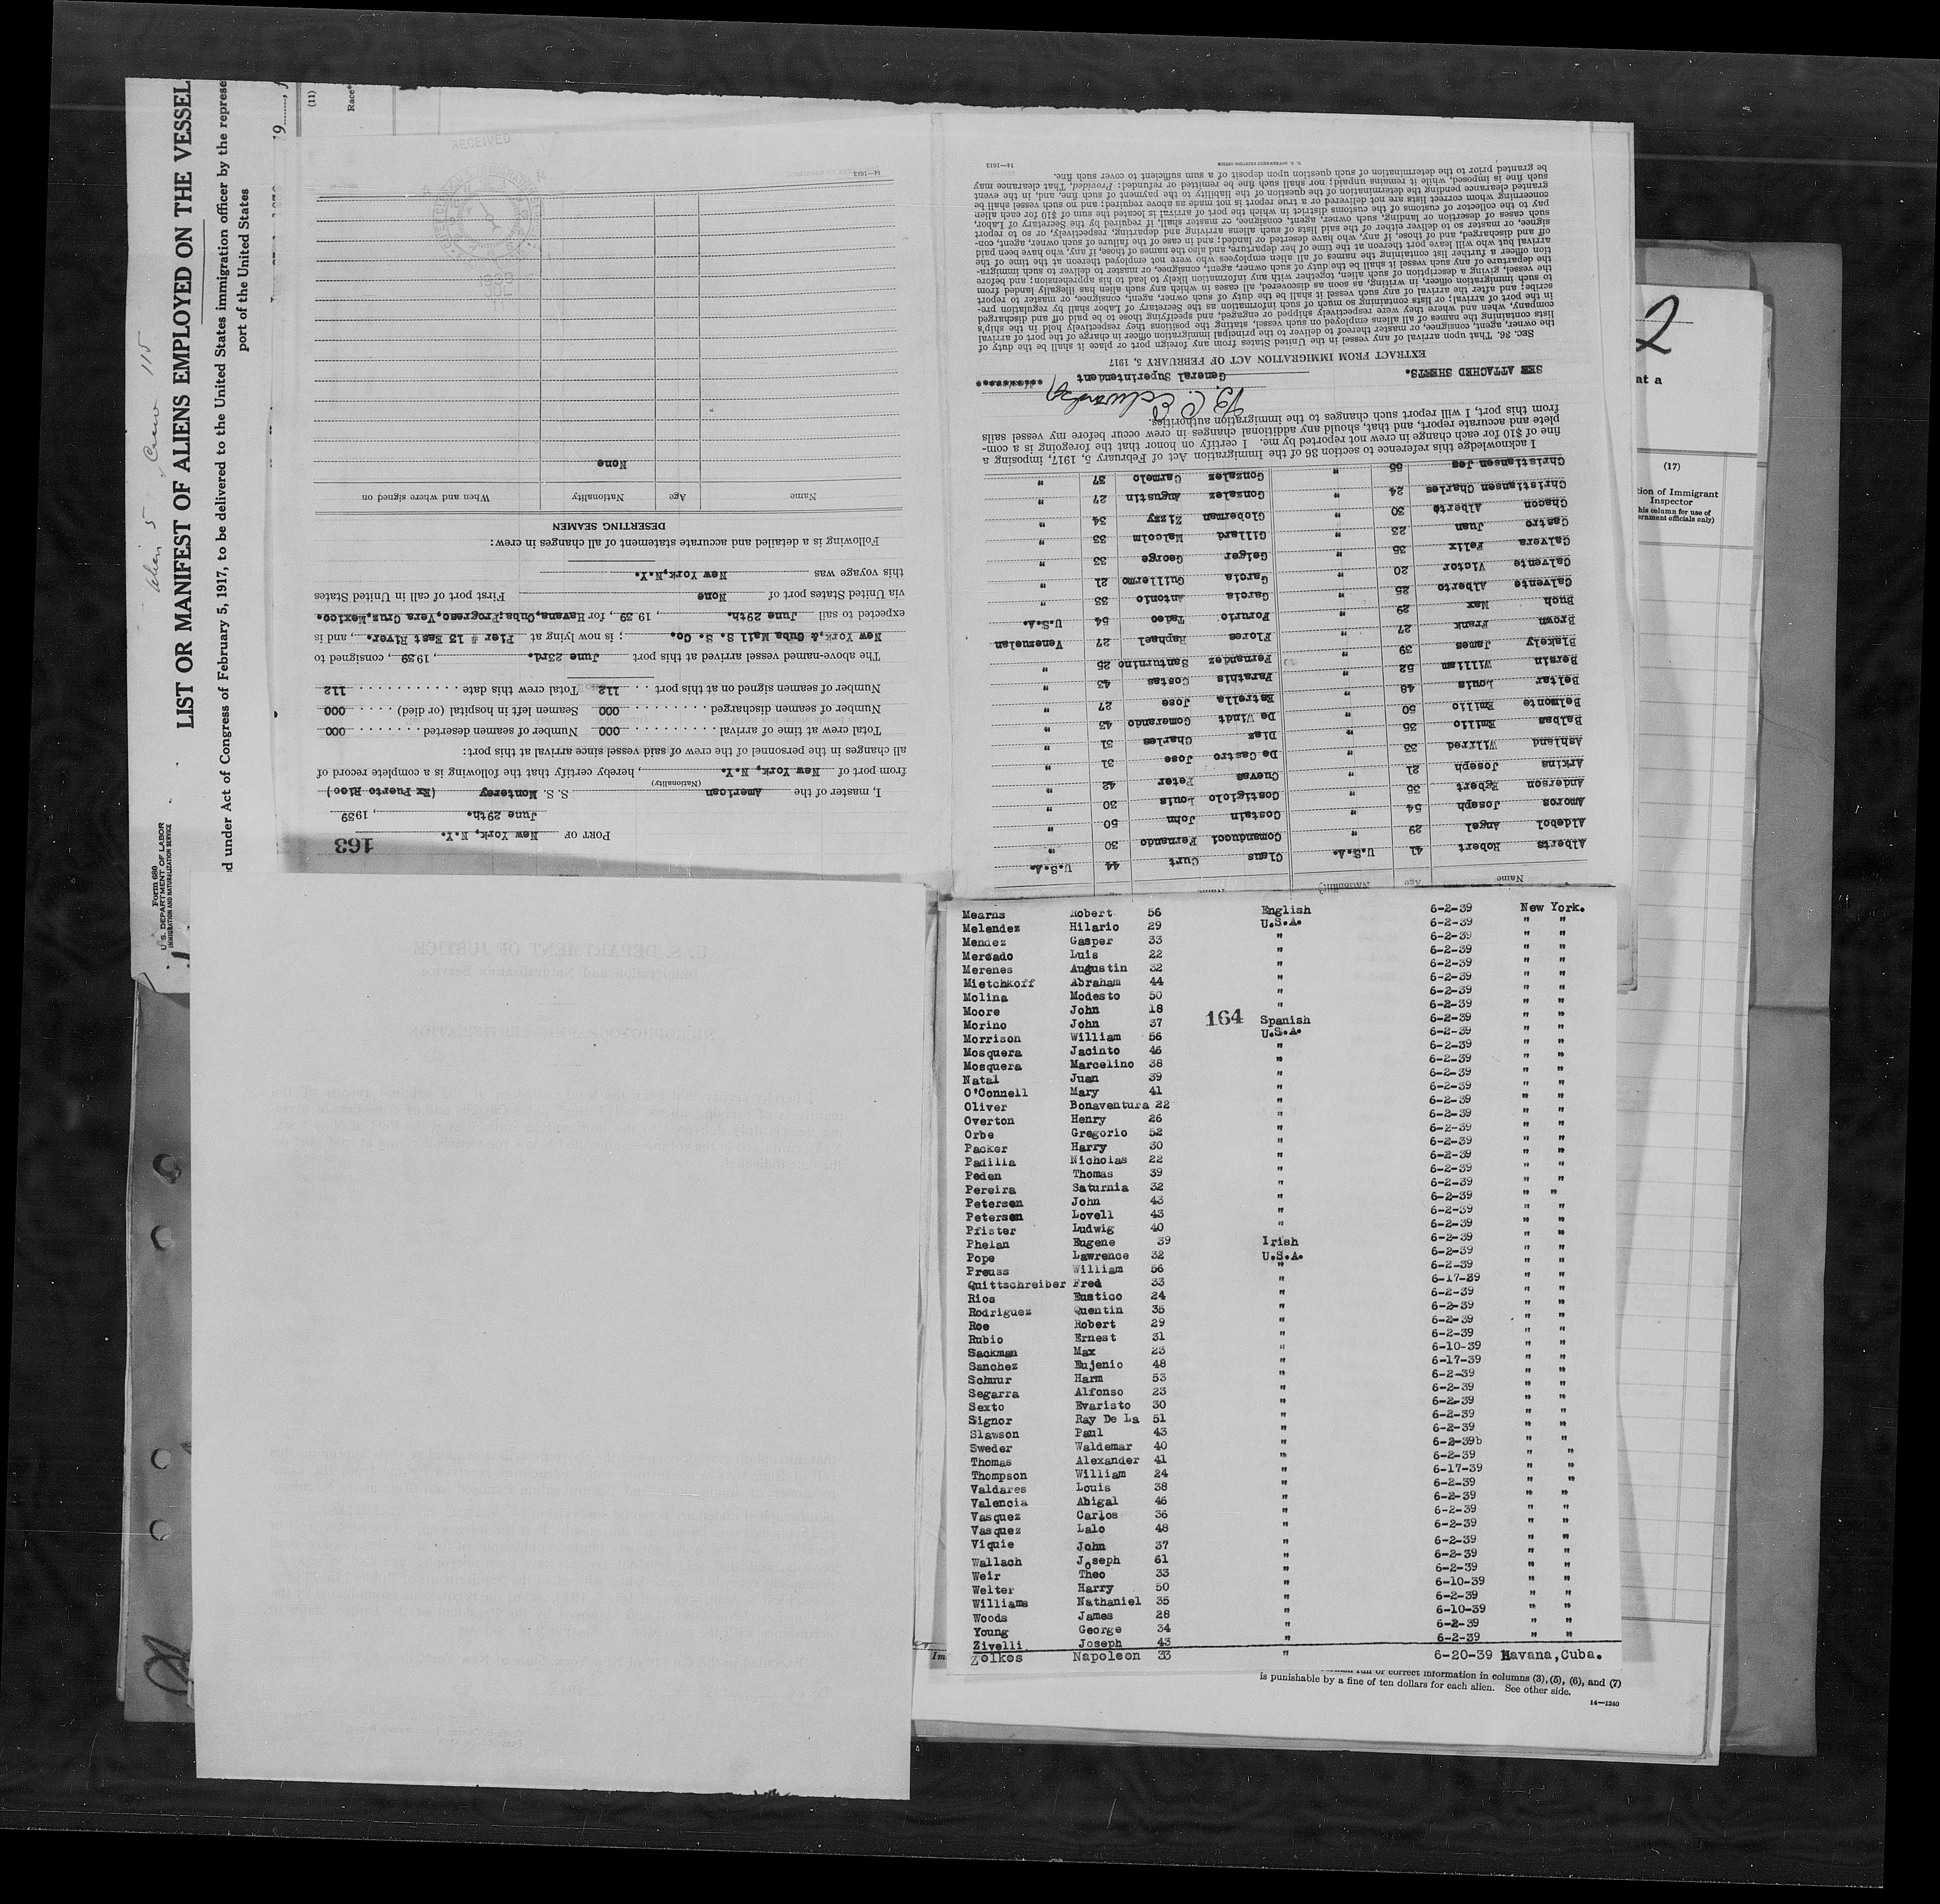 LIST OR MANIFEST OF ALIENS EMPLOYED ON THE VESSEL
d under Act of Congress of February 5, 1917, to be delivered to the United States immigration officer by the represe
port of the United States
Form 680
U. S. DEPARTMENT OF LABOR
IMMIGRATION AND NATURALIZATION SERVICE
(11)
Race*
163
PORT OF New York, N.Y.
June 29th. , 1939
I, master of the American S. S. Monterey (Ex Puerto Rico)
(Nationality)
from port of New York, N.Y. , hereby certify that the following is a complete record of
all changes in the personnel of the crew of said vessel since arrival at this port:
Total crew at time of arrival 000 Number of seamen deserted 000
Number of seamen discharged 000 Seamen left in hospital (or died) 000
Number of seamen signed on at this port 112 Total crew this date 112
The above-named vessel arrived at this port June 23rd. , 1939, consigned to
New York,& Cuba Mail S. S. Co. ; is now lying at Pier # 13 East River. , and is
expected to sail June 29th. , 1939, for Havana,Cuba;Progreso,Vera Cruz,Mexico.
via United States port of None First port of call in United States
this voyage was New York,N.Y.
Following is a detailed and accurate statement of all changes in crew:
DESERTING SEAMEN
Name Age Nationality When and where signed on
None
14—1613
RECEIVED
Name Age Nationality
Alberts Robert 41 U.S.A.
Aldebol Angel 29 "
Amoros Joseph 54 "
Anderson Egbert 35 "
Arkins Joseph 21 "
Ashland Wilfred 33 "
Balbas Emilio 35 "
Belmonte Emilio 50 "
Beltar Louis 48 "
Bersin William 52 "
Blakely James 39 "
Brown Frank 27 "
Buch Max 29 "
Calvente Alberto 25 "
Calvente Victor 20 "
Calvera Felix 35 "
Castro Juan 23 "
Chacon Alberto 30 "
Christiansen Charles 24 "
Christiansen Jes 55 "
Claus Curt 44 U.S.A.
Comanducci Fernando 30 "
Costain John 50 "
Costigiolo Louis 30 "
Cuevas Peter 42 "
De Castro Jose 31 "
Diaz Charles 31 "
De Windt Gomerando 43 "
Estrella Jose 27 "
Farathis Costas 43 "
Fernandez Santurnino 25 "
Flores Raphael 27 Venezuelan
Forurio Tadeo 54 U.S.A.
Garcia Antonio 33 "
Garcia Guillermo 21 "
Geiger George 33 "
Gillard Malcolm 33 "
Globerman Zizzy 34 "
Gonzalez Augustin 27 "
Gonzalez Carmelo 37 "
I acknowledge this reference to section 36 of the Immigration Act of February 5, 1917, imposing a
fine of $10 for each change in crew not reported by me. I certify on honor that the foregoing is a com-
plete and accurate report, and that, should any additional changes in crew occur before my vessel sails
from this port, I will report such changes to the immigration authorities.
SEE ATTACHED SHEETS.
General Superintendent
EXTRACT FROM IMMIGRATION ACT OF FEBRUARY 5, 1917
SEC. 36. That upon arrival of any vessel in the United States from any foreign port or place it shall be the duty of
the owner, agent, consignee, or master thereof to deliver to the principal immigration officer in charge of the port of arrival
lists containing the names of all aliens employed on such vessel, stating the positions they respectively hold in the ship's
company, when and where they were respectively shipped or engaged, and specifying those to be paid off and discharged
in the port of arrival; or lists containing so much of such information as the Secretary of Labor shall by regulation pre-
scribe; and after the arrival of any such vessel it shall be the duty of such owner, agent, consignee, or master to report
to such immigration officer, in writing, as soon as discovered, all cases in which any such alien has illegally landed from
the vessel, giving a description of such alien, together with any information likely to lead to his apprehension; and before
the departure of any such vessel it shall be the duty of such owner, agent, consignee, or master to deliver to such immigra-
tion officer a further list containing the names of all alien employees who were not employed thereon at the time of the
arrival but who will leave port thereon at the time of her departure, and also the names of those, if any, who have been paid
off and discharged, and of those, if any, who have deserted or landed; and in case of the failure of such owner, agent, con-
signee, or master so to deliver either of the said lists of such aliens arriving and departing, respectively, or so to report
such cases of desertion or landing, such owner, agent, consignee, or master shall, if required by the Secretary of Labor,
pay to the collector of customs of the customs district in which the port of arrival is located the sum of $10 for each alien
concerning whom correct lists are not delivered or a true report is not made as above required; and no such vessel shall be
granted clearance pending the determination of the question of the liability to the payment of such fine, and, in the event
such fine is imposed, while it remains unpaid; nor shall such fine be remitted or refunded: Provided, That clearance may
be granted prior to the determination of such question upon deposit of a sum sufficient to cover such fine.
U. S. GOVERNMENT PRINTING OFFICE 14—1613
2
at a
(17)
tion of Immigrant
Inspector
his column for use of
ernment officials only)
Mearns Robert 56 English 6-2-39 New York.
Melendez Hilario 29 U.S.A. 6-2-39 " "
Mendez Gasper 33 " 6-2-39 " "
Mercado Luis 22 " 6-2-39 " "
Merenes Augustin 32 " 6-2-39 " "
Mietchkoff Abraham 44 " 6-2-39 " "
Molina Modesto 50 " 6-2-39 " "
Moore John 18 " 6-2-39 " "
164
Morino John 37 Spanish 6-2-39 " "
Morrison William 56 U.S.A. 6-2-39 " "
Mosquera Jacinto 46 " 6-2-39 " "
Mosquera Marcelino 38 " 6-2-39 " "
Natal Juan 39 " 6-2-39 " "
O'Connell Mary 41 " 6-2-39 " "
Oliver Bonaventura 22 " 6-2-39 " "
Overton Henry 26 " 6-2-39 " "
Orbe Gregorio 52 " 6-2-39 " "
Packer Harry 30 " 6-2-39 " "
Padilla Nicholas 22 " 6-2-39 " "
Peden Thomas 39 " 6-2-39 " "
Pereira Saturnia 32 " 6-2-39 " "
Petersen John 43 " 6-2-39 " "
Petersen Lovell 43 " 6-2-39 " "
Pfister Ludwig 40 " 6-2-39 " "
Phelan Eugene 39 Irish 6-2-39 " "
Pope Lawrence 32 U.S.A. 6-2-39 " "
Preuss William 56 " 6-2-39 " "
Quittschreiber Fred 33 " 6-17-39 " "
Rios Eustico 24 " 6-2-39 " "
Rodriguez Quentin 35 " 6-2-39 " "
Roe Robert 29 " 6-2-39 " "
Rubio Ernest 31 " 6-2-39 " "
Sackman Max 23 " 6-10-39 " "
Sanchez Eujenio 48 " 6-17-39 " "
Schuur Harm 53 " 6-2-39 " "
Segarra Alfonso 23 " 6-2-39 " "
Sexto Evaristo 30 " 6-2-39 " "
Signor Ray De La 51 " 6-2-39 " "
Slawson Paul 43 " 6-2-39 " "
Sweder Waldemar 40 " 6-2-39b " "
Thomas Alexander 41 " 6-2-39 " "
Thompson William 24 " 6-17-39 " "
Valdares Louis 38 " 6-2-39 " "
Valencia Abigal 46 " 6-2-39 " "
Vasquez Carlos 36 " 6-2-39 " "
Vasquez Lalo 48 " 6-2-39 " "
Viquie John 37 " 6-2-39 " "
Wallach Joseph 61 " 6-2-39 " "
Weir Theo 33 " 6-2-39 " "
Welter Harry 50 " 6-10-39 " "
Williams Nathaniel 35 " 6-2-39 " "
Woods James 28 " 6-10-39 " "
Young George 34 " 6-2-39 " "
Zivelli Joseph 43 " 6-2-39 " "
Zolkos Napoleon 33 " 6-20-39 Havana,Cuba.
or correct information in columns (3), (5), (6), and (7)
is punishable by a fine of ten dollars for each alien. See other side.
14—1240